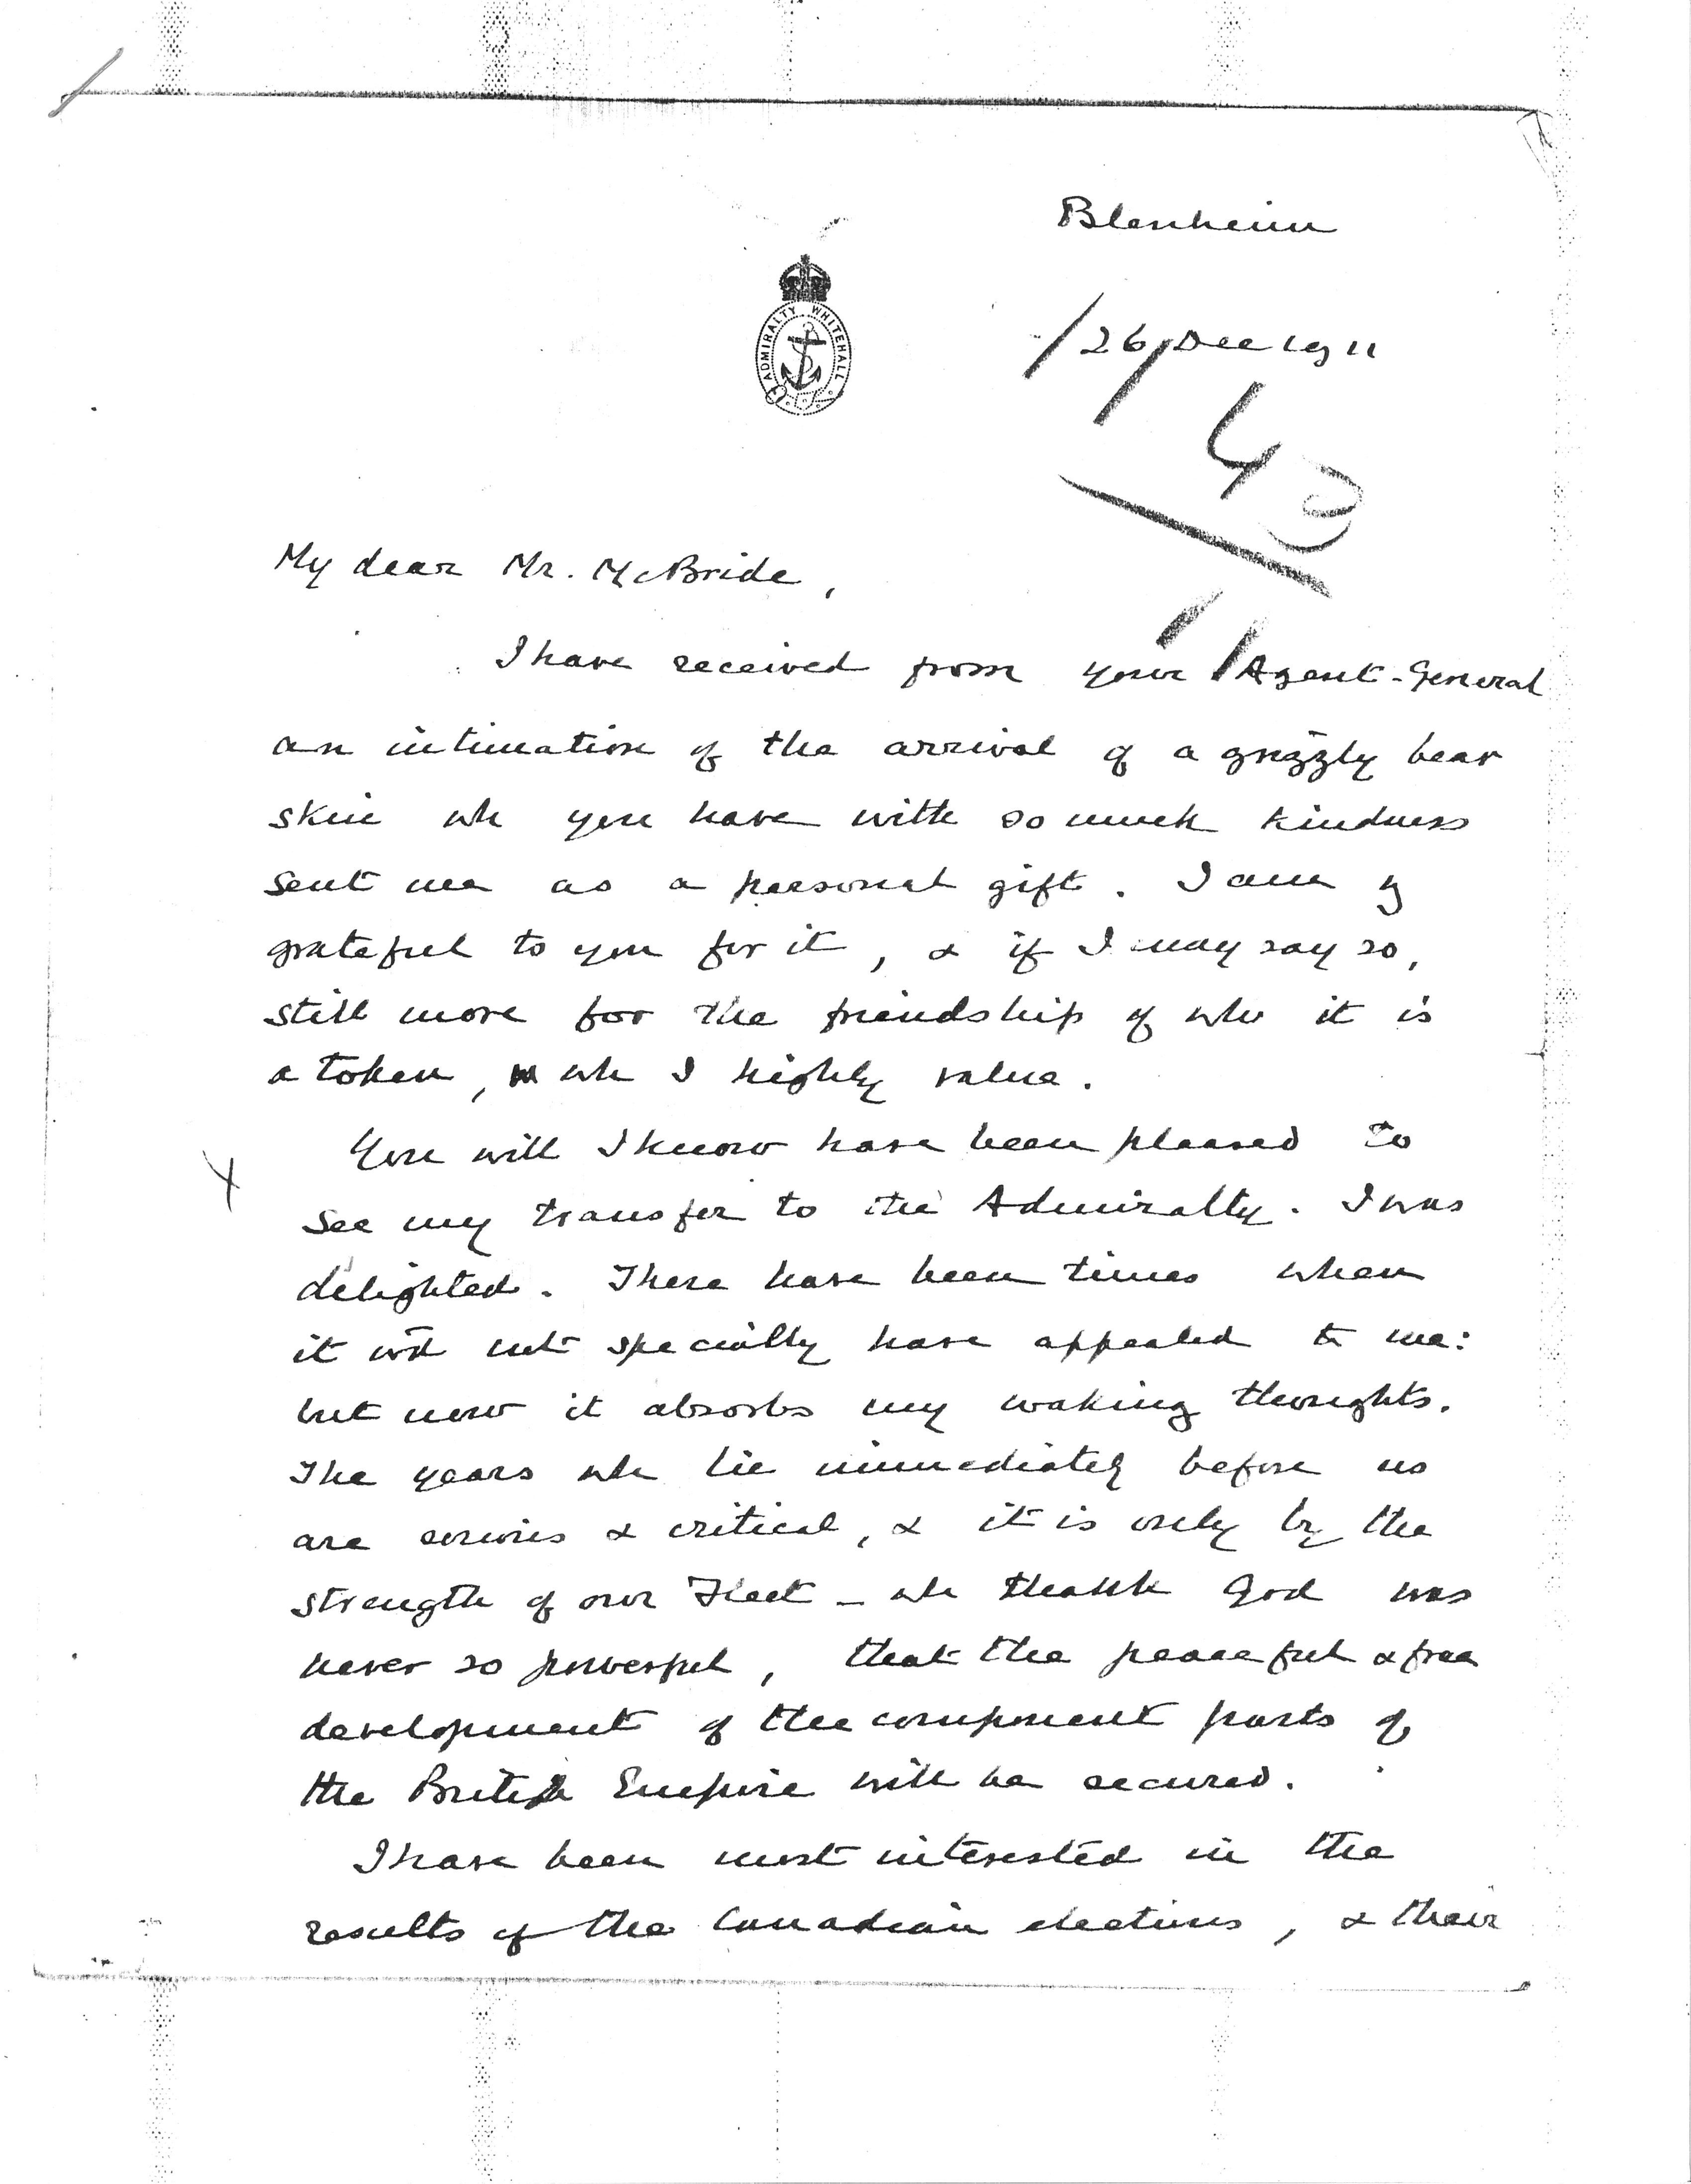 Blenheim
ADMIRALTY WHITEHALL
26 Dec 1911
43
My dear Mr. McBride,
I have received from your Agent-General
an intimation of the arrival of a grizzly bear
skin wh you have with so much kindness
sent me as a personal gift. I am
grateful to you for it, & if I may say so,
still more for the friendship of wh it is
a token, wh I highly value.
You will I know have been pleased to
see my transfer to the Admiralty. I was
delighted. There have been times when
it wd not specially have appealed to me:
but now it absorbs my waking thoughts.
The years wh lie immediately before us
are serious & critical, & it is only by the
strength of our Fleet - wh thank God was
never so powerful, that the peaceful & free
development of the component parts of
the British Empire will be secured.
I have been most interested in the
results of the Canadian elections, & their